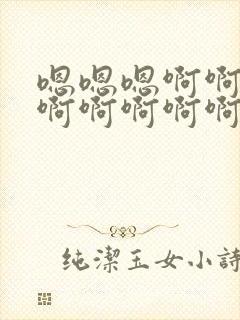 嗯嗯嗯啊啊
啊啊啊啊啊
纯潔玉女小詩